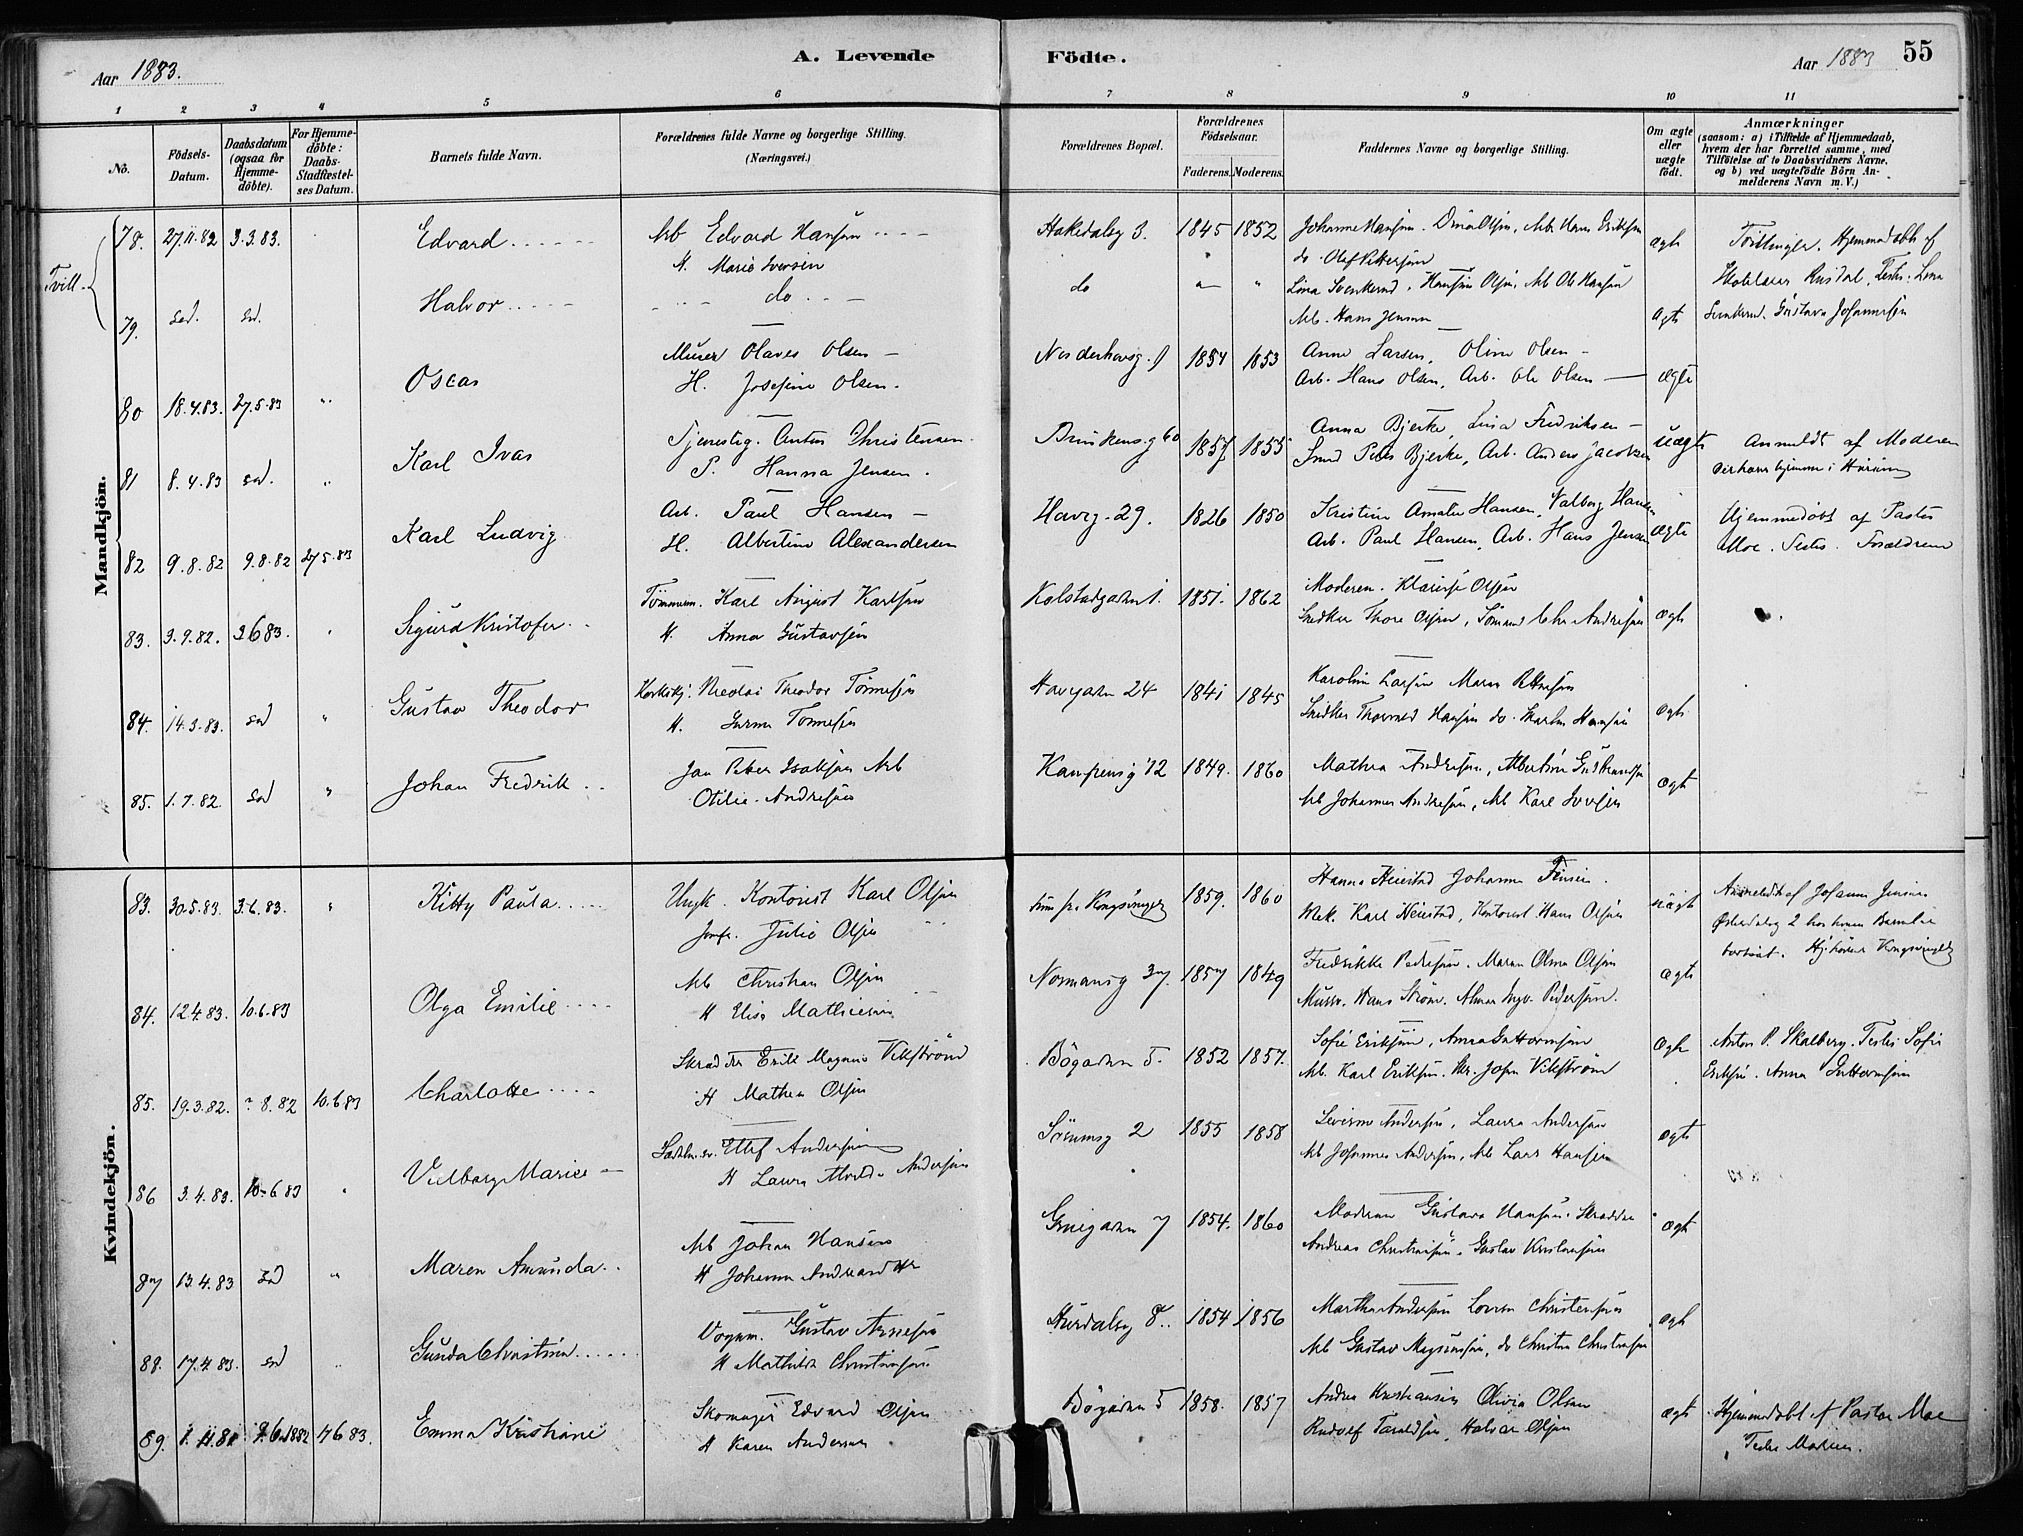 Aar 1883.
A. Levende Födte.
Aar 1883 55
1 2 3 4 5 6 7 8 9 10 11
No.
Födsels-Datum.
Daabsdatum (ogsaa for Hjemme-döbte).
For Hjemme-döbte: Daabs-Stadfæstel-ses Datum.
Barnets fulde Navn.
Forældrenes fulde Navne og borgerlige Stilling. (Næringsvei.)
Forældrenes Bopæl.
Forældrenes Födselsaar.
Faderens. Moderens.
Faddernes Navne og borgerlige Stilling.
Om ægte eller uægte födt.
Anmærkninger
(saasom: a) i Tilfælde af Hjemmedaab,
hvem der har forrettet samme, med
Tilföielse af to Daabsvidners Navne,
og b) ved uægtefödte Börn An-
melderens Navn m. V.)
Mandkjön.
Tvill.
78. 27.11.82 3.3.83. Edvard Arb Edvard Hansen Hakedalsg 3. 1845 1852 Johanne Hansen. Dina Olsen, Arb. Hans Eriksen ægte Tvillinger. Hjemmedøbt af
H. Marie Iversen do. Olaf Pettersen
79. sad. sd. Halvor do do Lina , Hansine Olsen, Arb Ole Hansen ægte
Arb. Hans Jensen Gustava Johannesen
80 18.4.83. 27.5.83 " Oscar Murer Olaves Olsen Norderhovsg. 1854 1853 Anne Larsen, Oline Olsen ægte
H. Josefine Olsen. Arb. Hans Olsen, Arb. Ole Olsen
81 8.4.83 sad. " Karl Ivar Tjenesteg. Anton Christensen Brinkensg 60 1857 1855 Anna Bjerke, Lina Fredriksen uægte Anmeldt af Moderen
P. Hanna Jensen. Smed Peter Bjerke, Arb. Anders Jacobsen
82 9.8.82 9.8.82 27.5.83 Karl Ludvig Arb. Paul Hansen Havg. 29. 1826 1850 Kristine Amalie Hansen, Valborg Hansen ægte Hjemmedøbt af Pastor
H. Albertine Alexandersen Arb. Paul Hansen, Arb. Hans Jensen Moe. Testes. Forældrene
83. 3.9.82. 3.6 83. " Sigurd Kristofer Tømmerm. Karl August Karlsen Kolstadgaden 1. 1851. 1862 Moderen. Olsen ægte
H. Anna Gustavsen Snedker Thore Olsen, Sømand Chr Andresen
84. 14.3.83. sad " Gustav Theodor Nicolai Theodor Tønnesen Havgaden 24 1841 1845 Karoline Larsen Maren Pettersen ægte
H. Tønnesen Snedker Thorvald Hansen do. Hansen
85. 1.7.82. sad " Johan Fredrik Jan Peter Isaksen Arb Kampensg 12 1849. 1860 Mathea Andresen, Albertine ægte
Otilie Andresen Arb Johannes Andresen, Arb Karl Iversen
Kvindekjön.
83. 30.5.83. 3.6.83. " Kitty Paula Ungk. Kontorist Karl Olsen Kongsvinger 1859. 1860 Hanna Heiestad Johanna uægte Anmeldt af Johanne Jensen
Jomfr. Julie Olsen Mek. Karl Heiestad, Kontorist Hans Olsen Østerdalsg 2 hos hvem Barnet er
bortsat. Kongsvinger
84. 12.4.83. 10.6.83 Olga Emilie Arb Christian Olsen Normansg 37. 1857 1849 Fredrikke Pedersen. Maren Olina Olsen ægte
H Elise Mathiesen Murer. Hans Strøm. Pedersen.
85. 19.3.82. ? 8.82 10.6.83 Charlotte Skrædder Erik Magnus Vikstrøm Bøgaden 5. 1852 1857. Sofie Eriksen, Anna Guttormsen ægte Anton P. Skalberg. Testes Sofie
H Mathea Olsen Arb. Karl Eriksen. Johan Vikstrøm Eriksen. Anna Guttormsen
86 3.4.83. 10.6 83 " Valborg Marie Ellef Andersen Sørumsg 2 1855 1858 Severine Andersen, Laura Andersen ægte
H Laura Andersen Arb Johannes Andersen, Arb Lars Hansen
87 13.4.83 sad " Maren Amunda Arb Johan Hansen Gruegaden 7 1854. 1860 Moderen Gustava Hansen. Skrædder ægte
H Johanna Andreasdtr Andreas Christensen. Gustav Kristensen
88. 17.4.83. sad " Gunda Christine Vognm. Gustav Arnesen Hurdalsg 8. 1854 1856 Martha Andersen Lovise Christensen ægte
H Mathilde Christensen Arb Gustav Magnussen, do Christen Christensen
89. 1.11.81 9.6.1882 17683. Emma Kristiane Skomager Edvard Olsen Bøgaden 5 1858. 1857 Andrea Kristiansen Olivia Olsen ægte Hjemmedøbt af Pastor Moe
H Karen Andersen Rudolf Taraldsen, Halvor Olsen